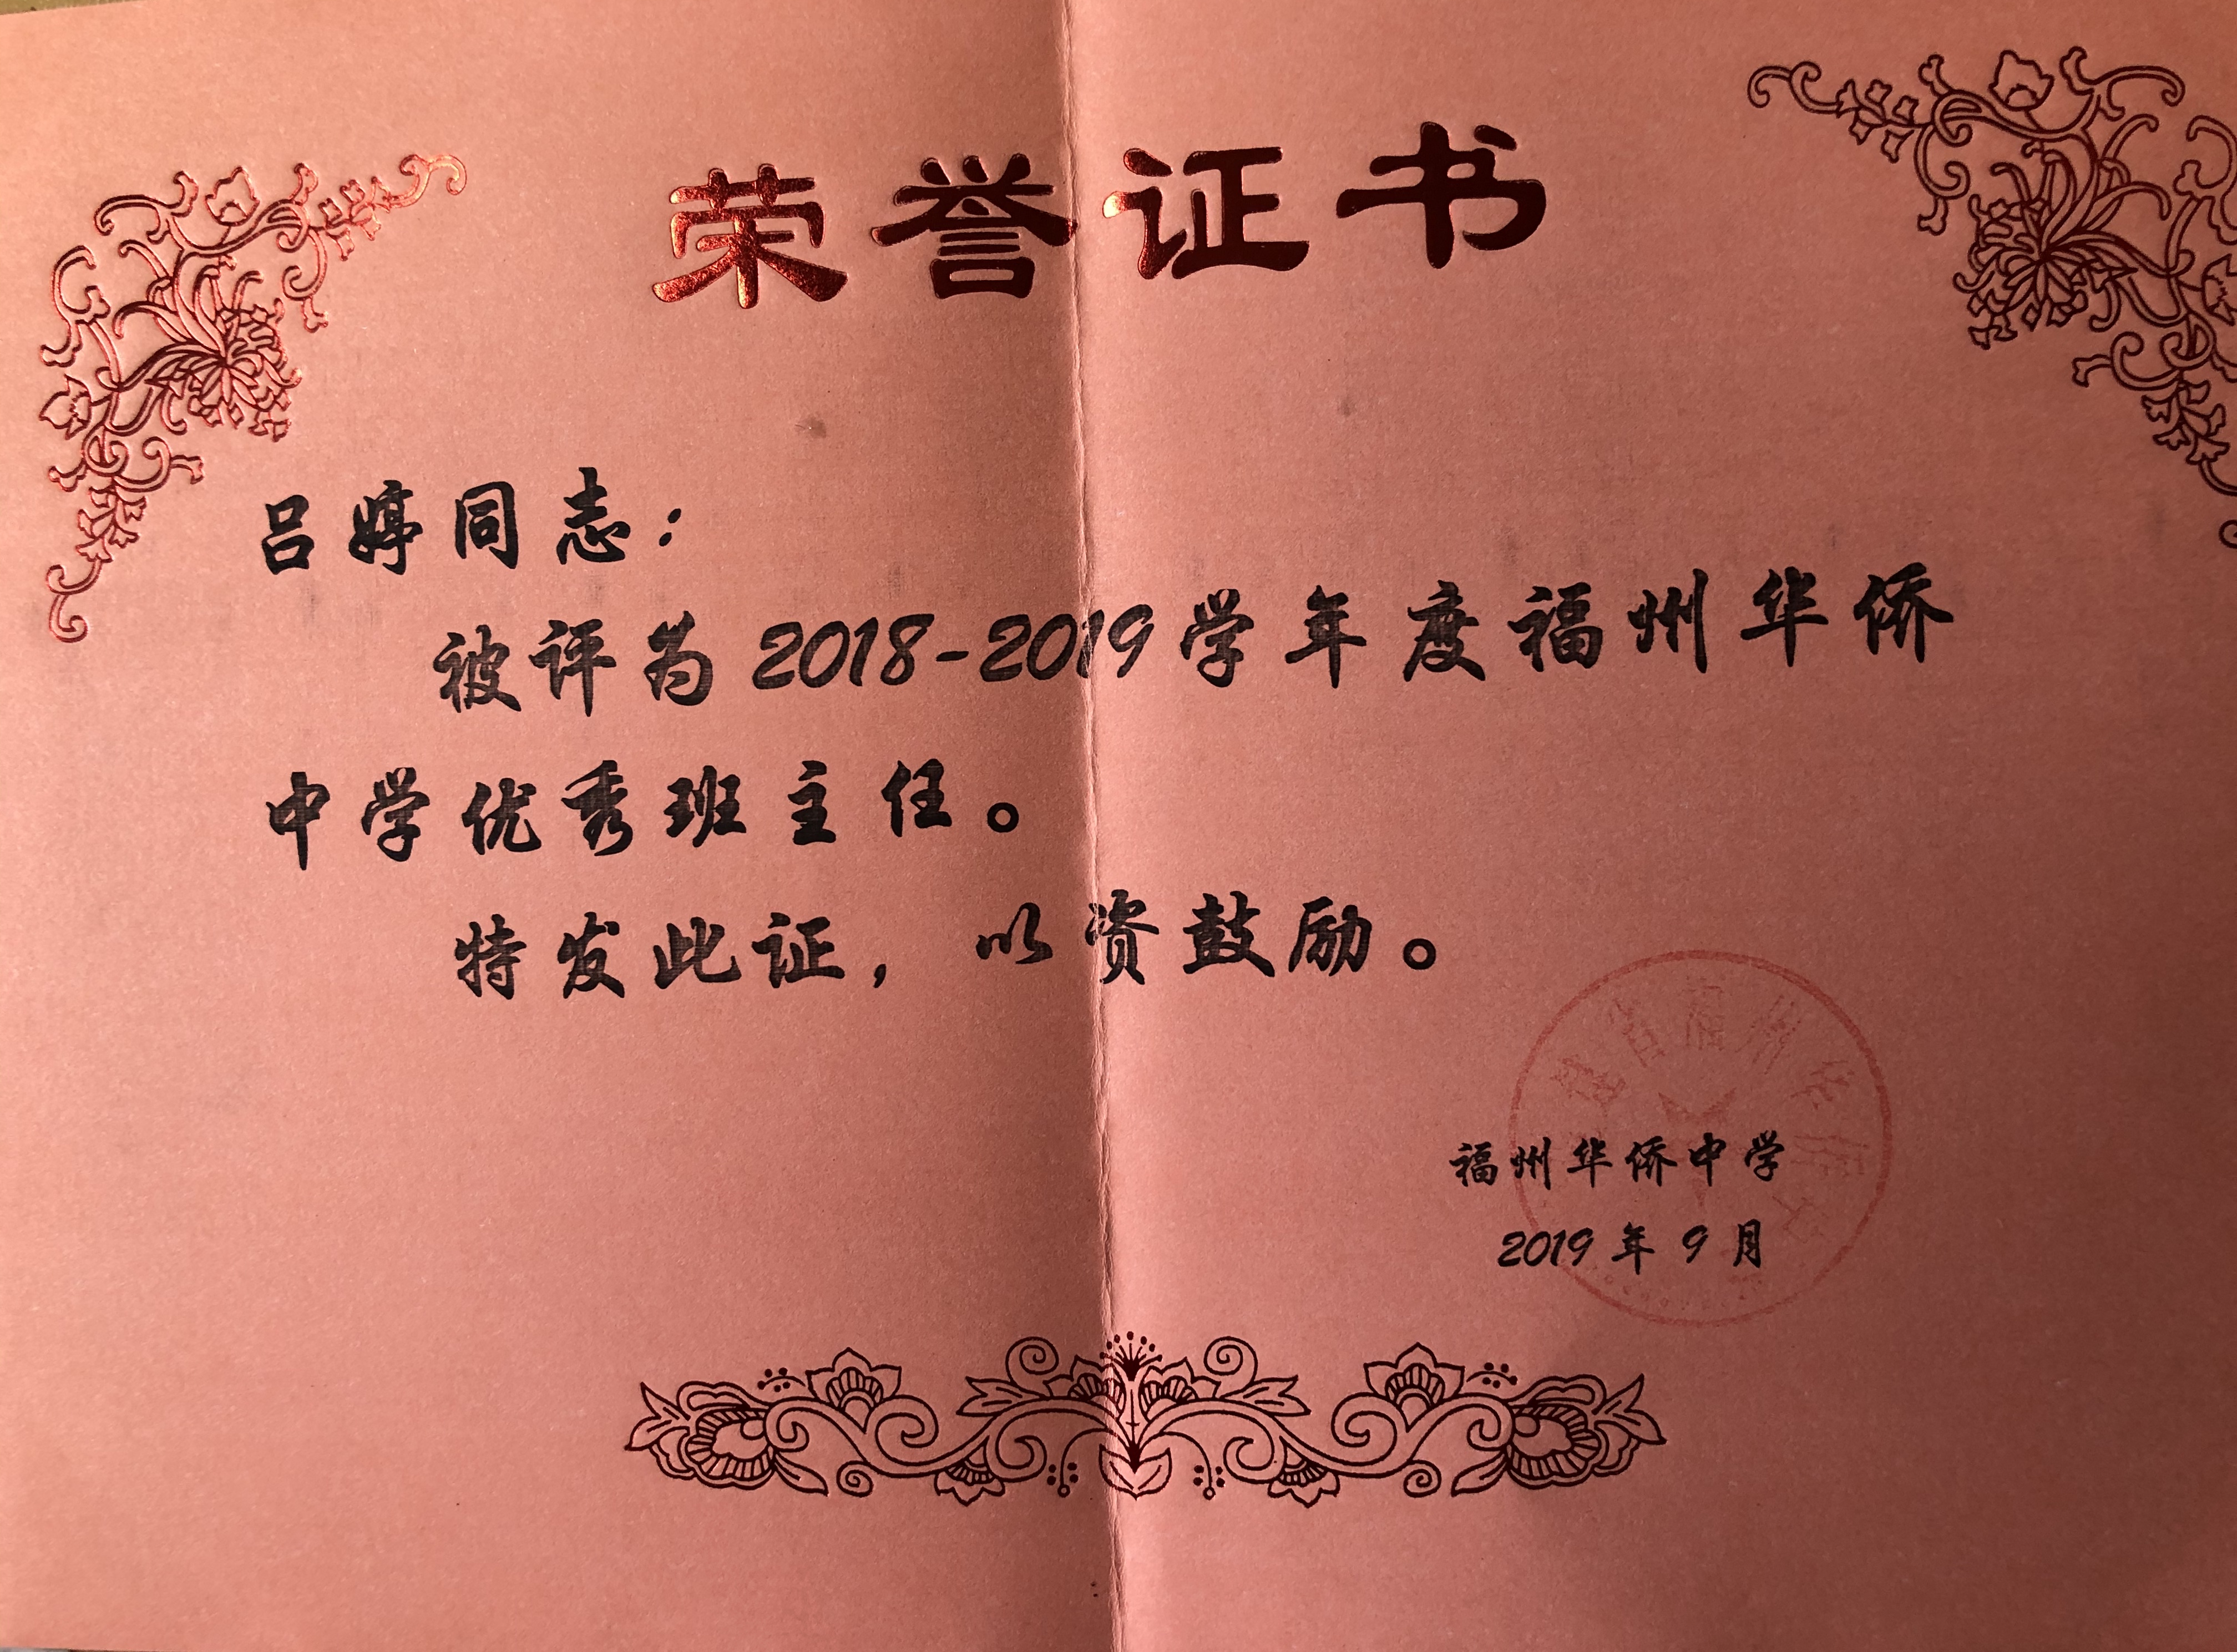 荣誉证书
吕婷同志：
被评为2018-2019学年度福州华侨
中学优秀班主任。
特发此证，以资鼓励。
福州华侨中学
2019年9月